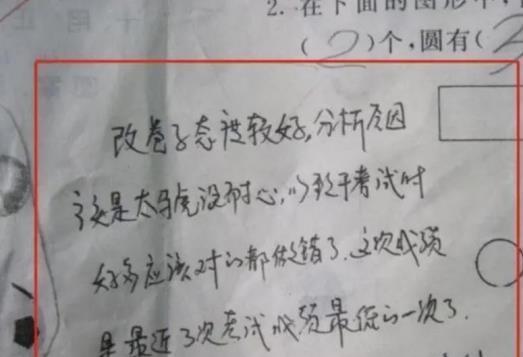 2. 在下面的图形中,
(2)个,圆有(2
改卷子态度较好,分析原因
应该是太马虎没耐心,以致于考试时
好多应该对的都做错了.这次成绩
是最近几次考试成绩最低的一次了.